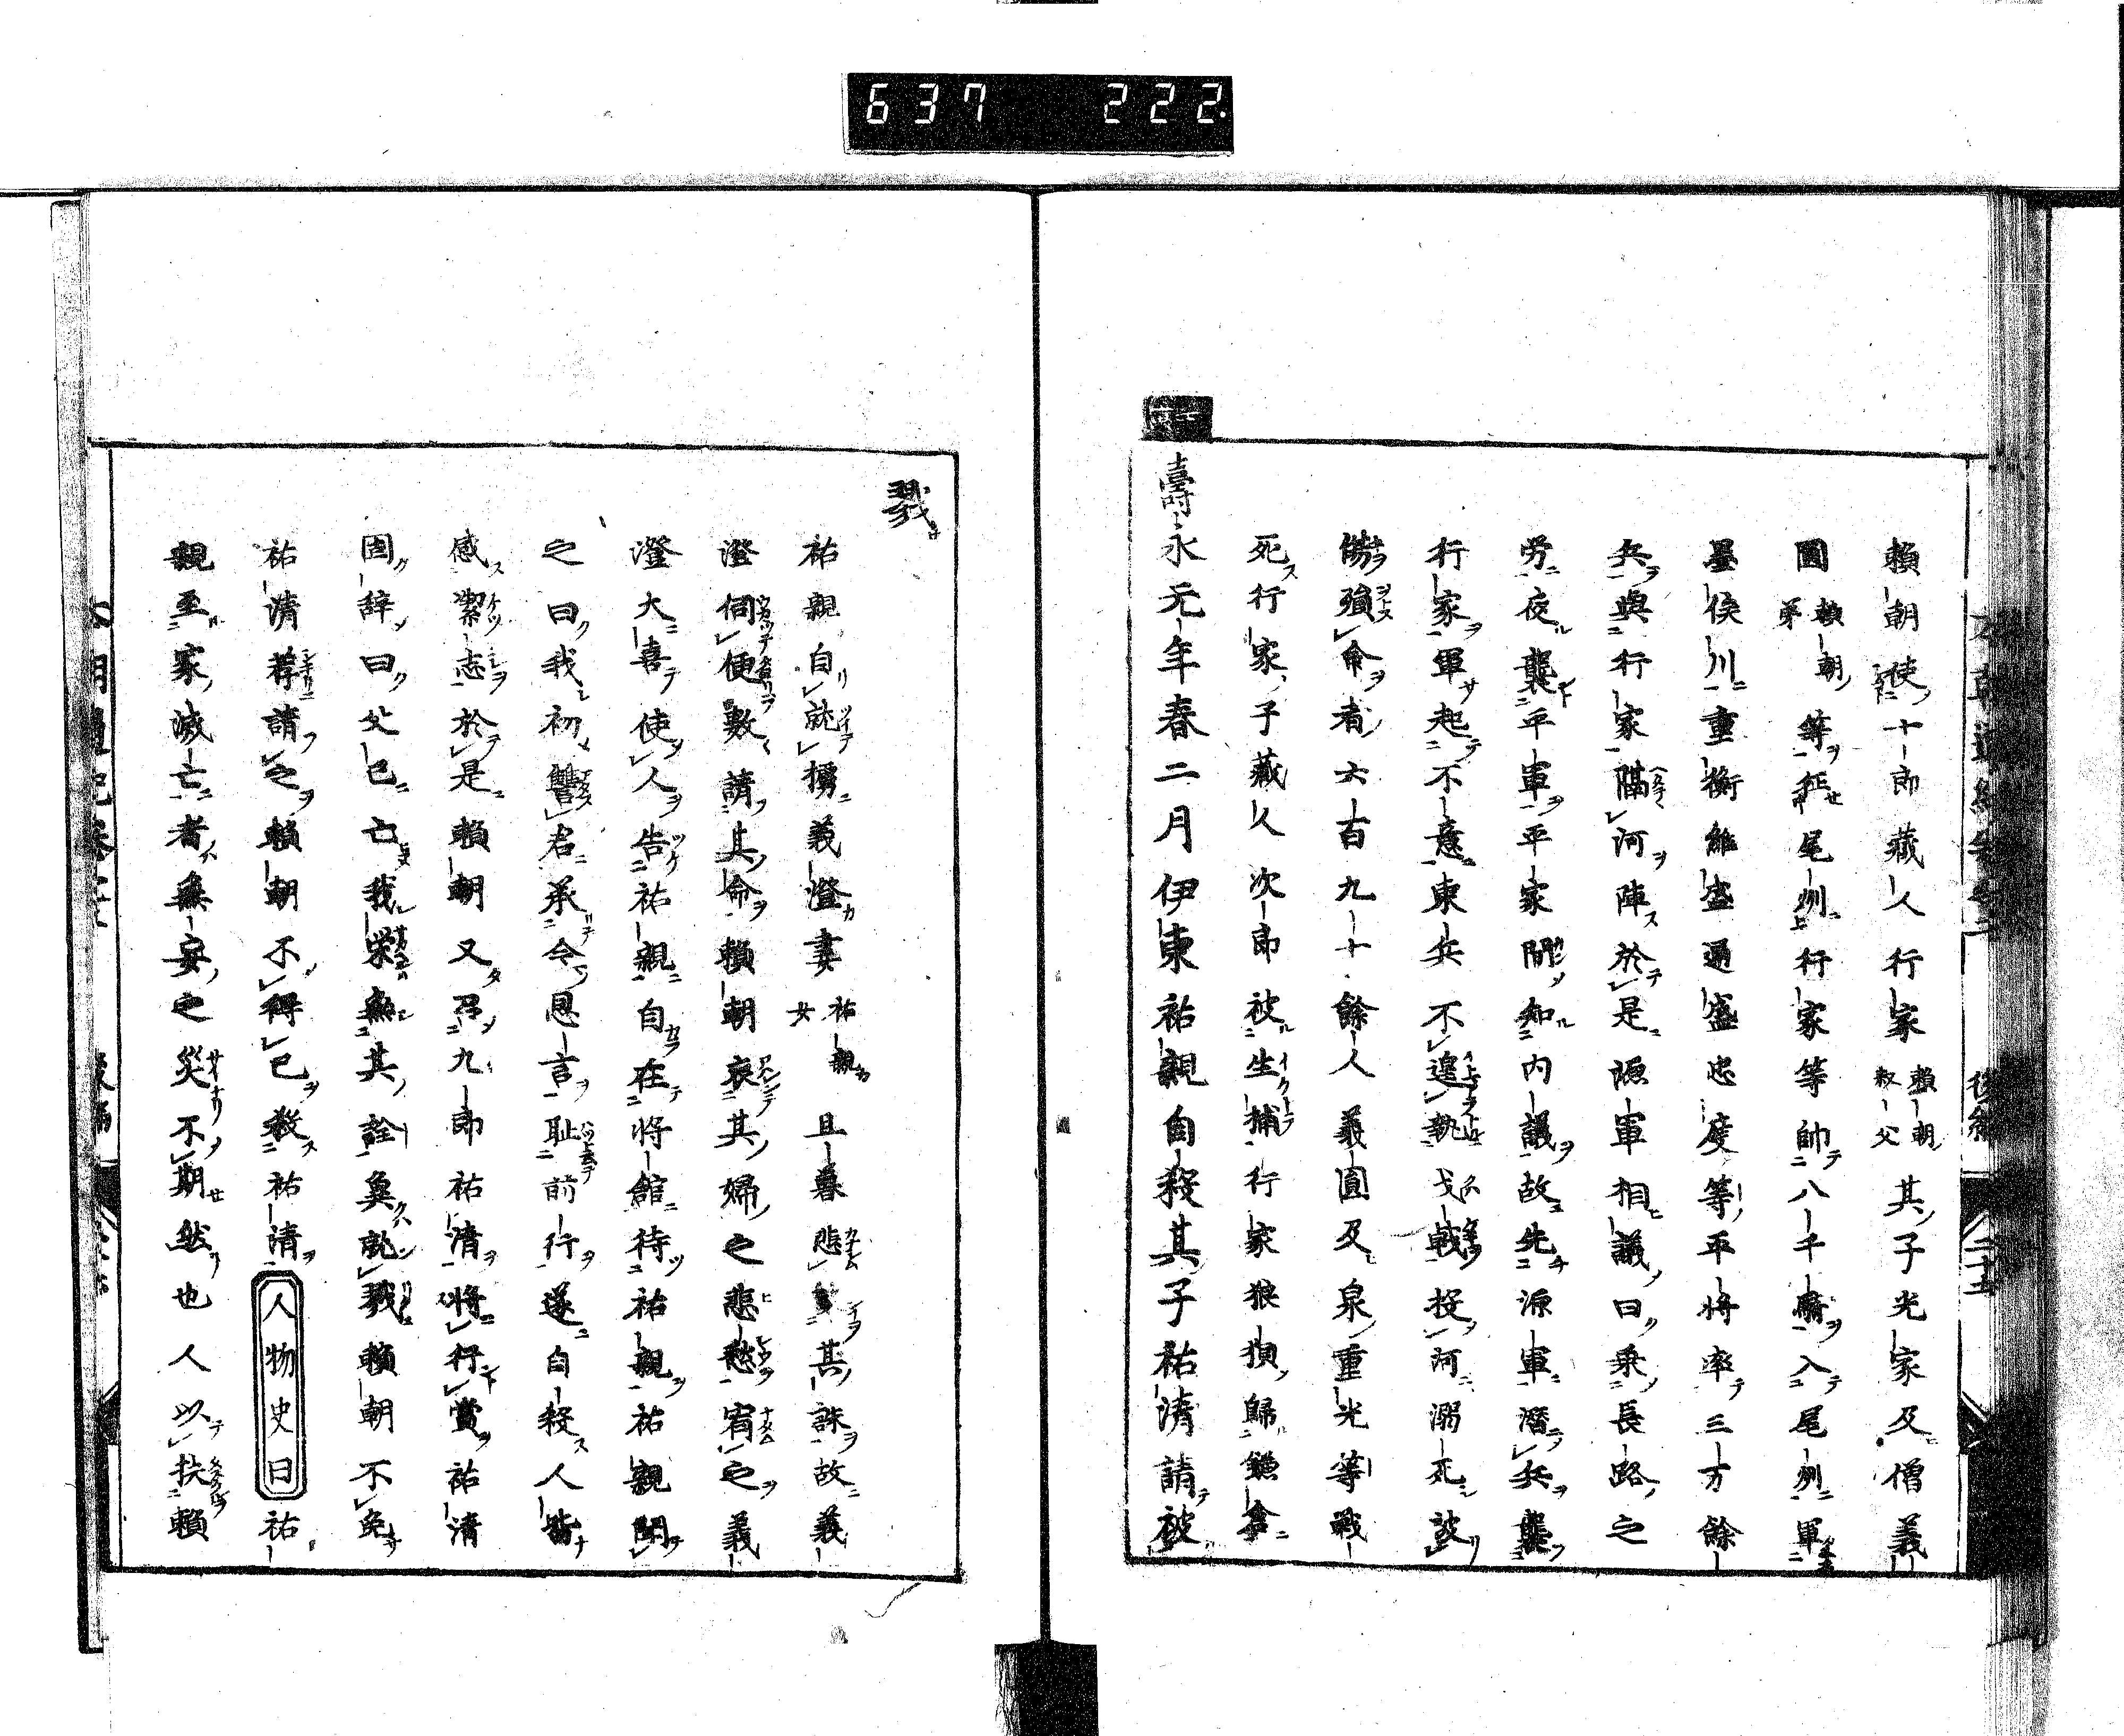 637 222
賴朝使十郎藏人行家賴朝叔父其子光家及僧義
圓賴朝弟等征尾州行家等帥八千騎入尾州軍
墨俣川重衡維盛通盛忠度等平將率三万餘
兵與行家隔河陣於是源軍相議曰乗長路之
労夜襲平軍平家間知内議故先源軍潛兵襲
行家軍起不意東兵不遑執戈戦投河溺死被
傷殞命者六百九十餘人義圓及泉重光等戰
死行家子藏人次郎被生捕行家狼狽歸鎌倉
壽永元年春二月伊東祐親自殺其子祐清請被
戮
祐親自就搦義澄妻祐親女旦暮悲其誅故義
澄伺便數請其命賴朝哀其婦之悲愁宥之義
澄大喜使人告祐親自在將館待祐親祐親聞
之曰我初讐君承今恩言耻前行遂自殺人皆
感潔志於是賴朝又召九郎祐清將行賞祐清
固辞曰父已亡我栄無其詮奠就戮賴朝不免
祐清荐請之賴朝不得已殺祐清人物史曰祐
親至家滅亡者無妄之災不期然也人以扶賴